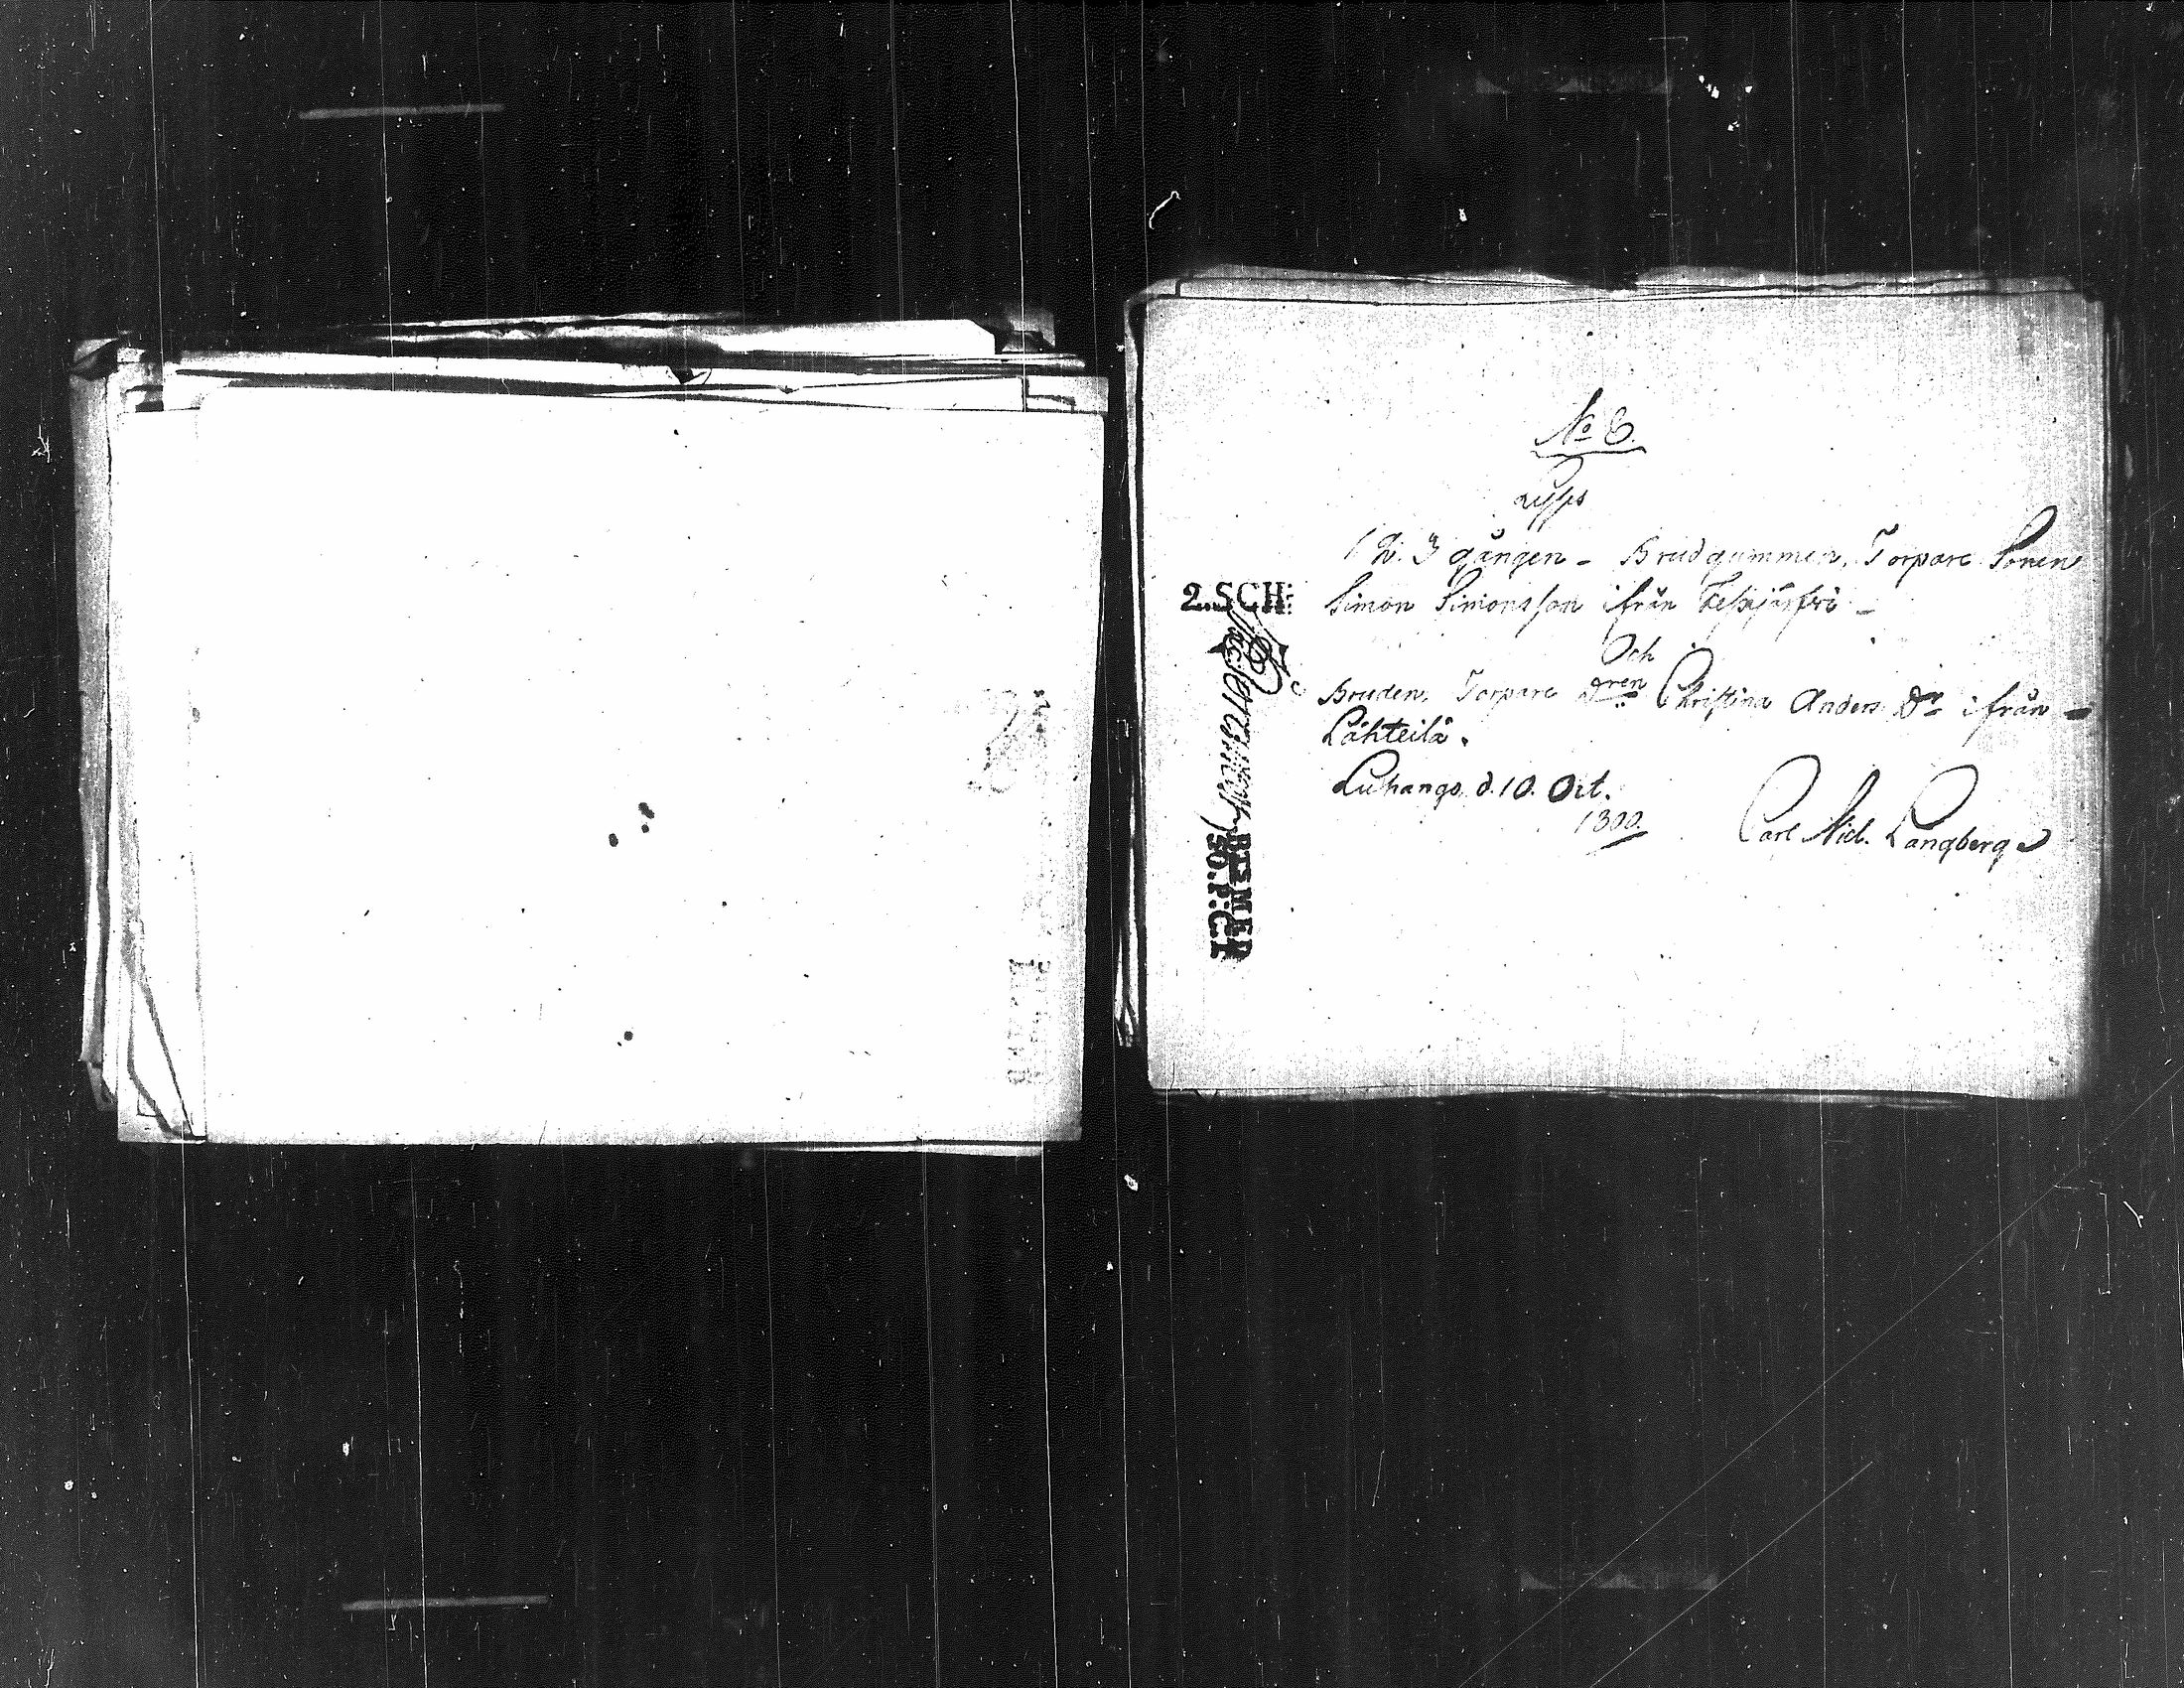 No 6.
Lyses
1 2. 3 gången - Brudgummen, Torpare Sonen
2.SCH:
Simon Simonsson ifrån
Och
Bruden, Torpare Dren Christina Anders Dr ifrån -
Lähteilä.
Luhango, d. 10. Oct.
1800.
Carl Nicl. Langberg
BTSMER
50.P:CT